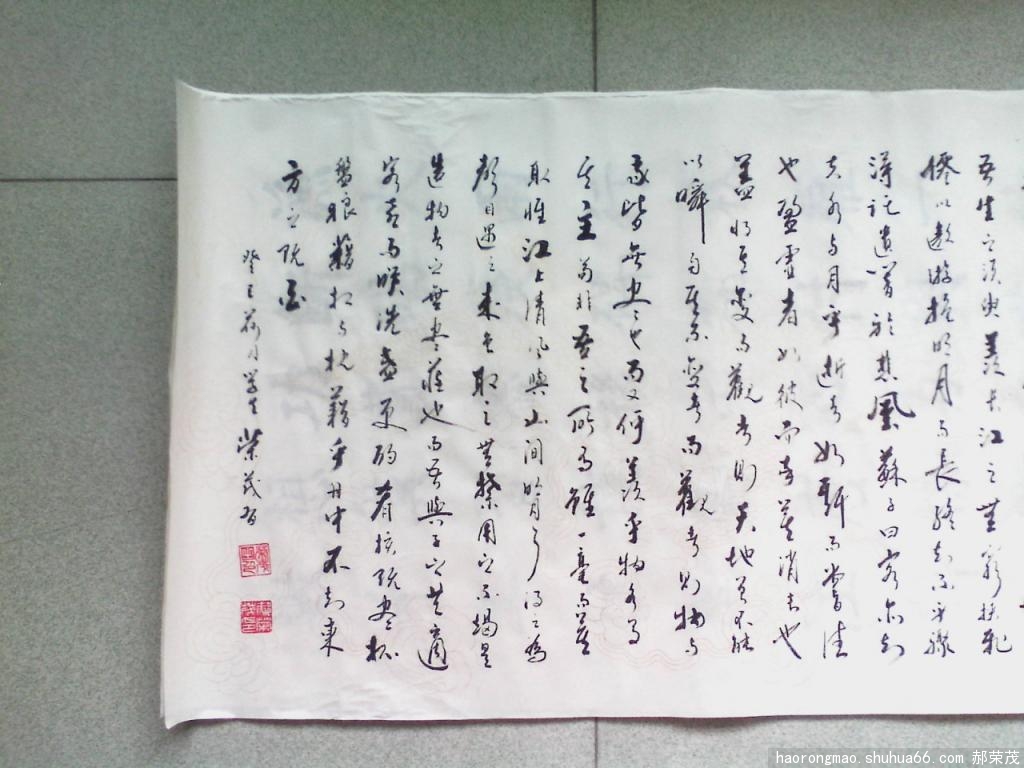 吾生之須臾羨長江之無窮挾飛
僊以遨游抱明月而長終知不乎驟
得託遺響於悲風蘇子曰客亦知
夫水与月乎逝者如斯而嘗往
也盈虛者如彼而卒莫消長也
蓋將自其變而觀者則天地曾不能
以瞬自其不變者而觀者則物与
我皆無盡也而又何羨乎物各有
其主苟非吾之所有雖一毫而莫
取惟江上清風與山間明月耳得之為
聲目遇之成色取之無禁用之不竭是
造物者之無盡藏也而吾與子之共適
客喜而笑洗盞更酌肴核既盡杯
盤狼藉相与枕藉乎舟中不知東
方之既白
癸巳荷月榮茂書
haorongmao.shuhua66.com 郝荣茂